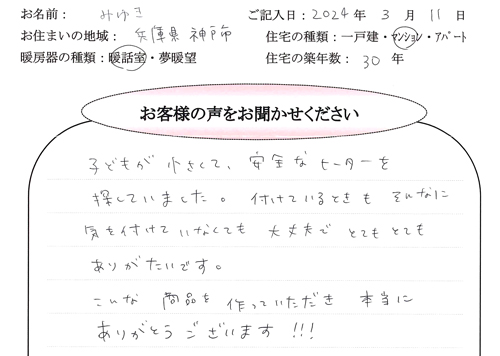 お名前： みゆき ご記入日：2024年 3 月 11 日
お住まいの地域： 兵庫県神戸市 住宅の種類：一戸建・マンション・アパート
暖房器の種類：暖話室・夢暖望 住宅の築年数： 30 年
お客様の声をお聞かせください
子どもが 小さくて、安全な ヒーターを
探していました。付けているときも そんなに
気を付けて いなくても 大丈夫で とてもとても
ありがたいです。
こんな 商品を 作っていただき 本当に
ありがとう ございます !!!